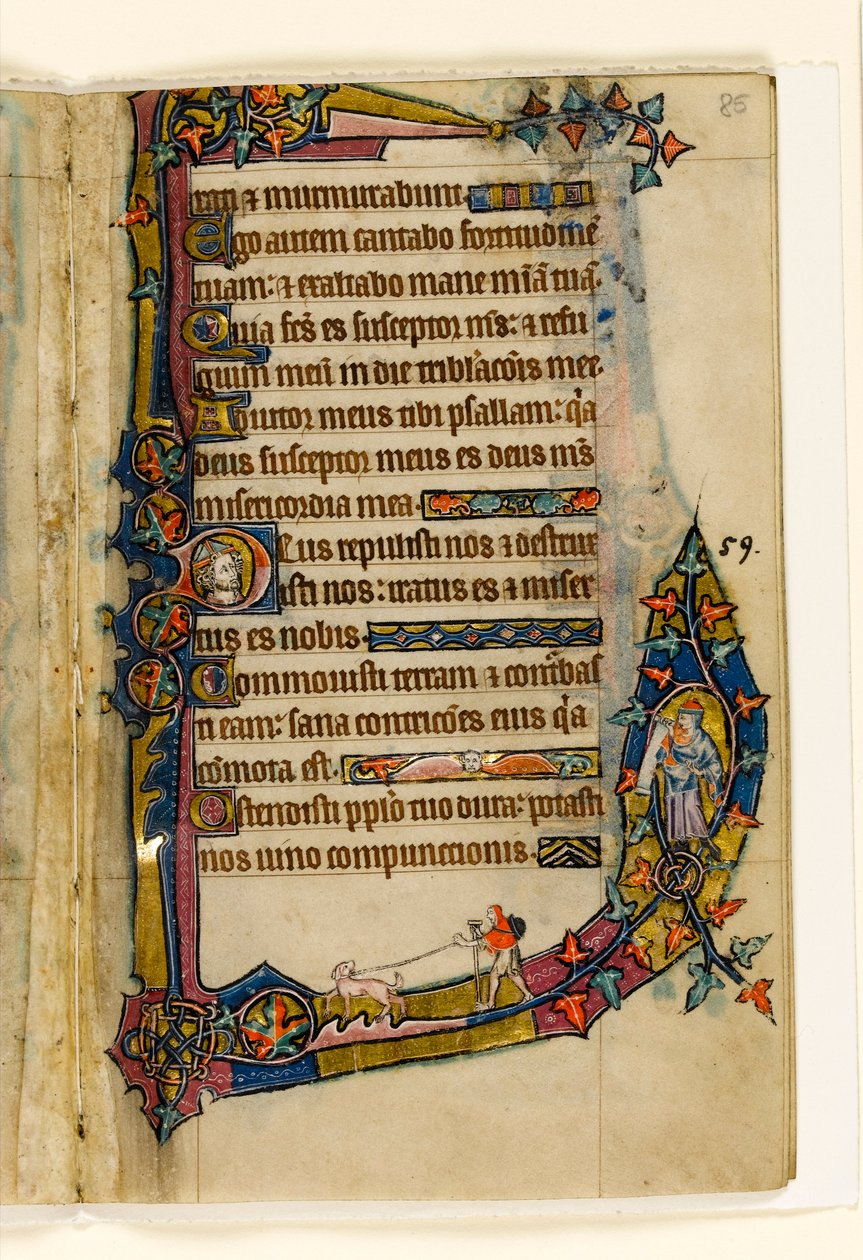 85
rati & murmurabunt
Ego autem cantabo fortitudinē
tuam: & exaltabo mane mīā tuā.
Quia fc̄s es susceptor m̄s: & refu
gium meū in die tribl'acōis mee.
Adiutor meus tibi psallam: qͥa
deus susceptor meus es deus m̄s
misericordia mea.
Deus repulisti nos & destrux
isti nos: iratus es & miser
tus es nobis.
Commouisti terram & contͬbas
ti eam: sana contricōes eius qͥa
cōmota est.
Ostendisti ppl'o tuo dura: potasti
nos uino compunctionis.
59.